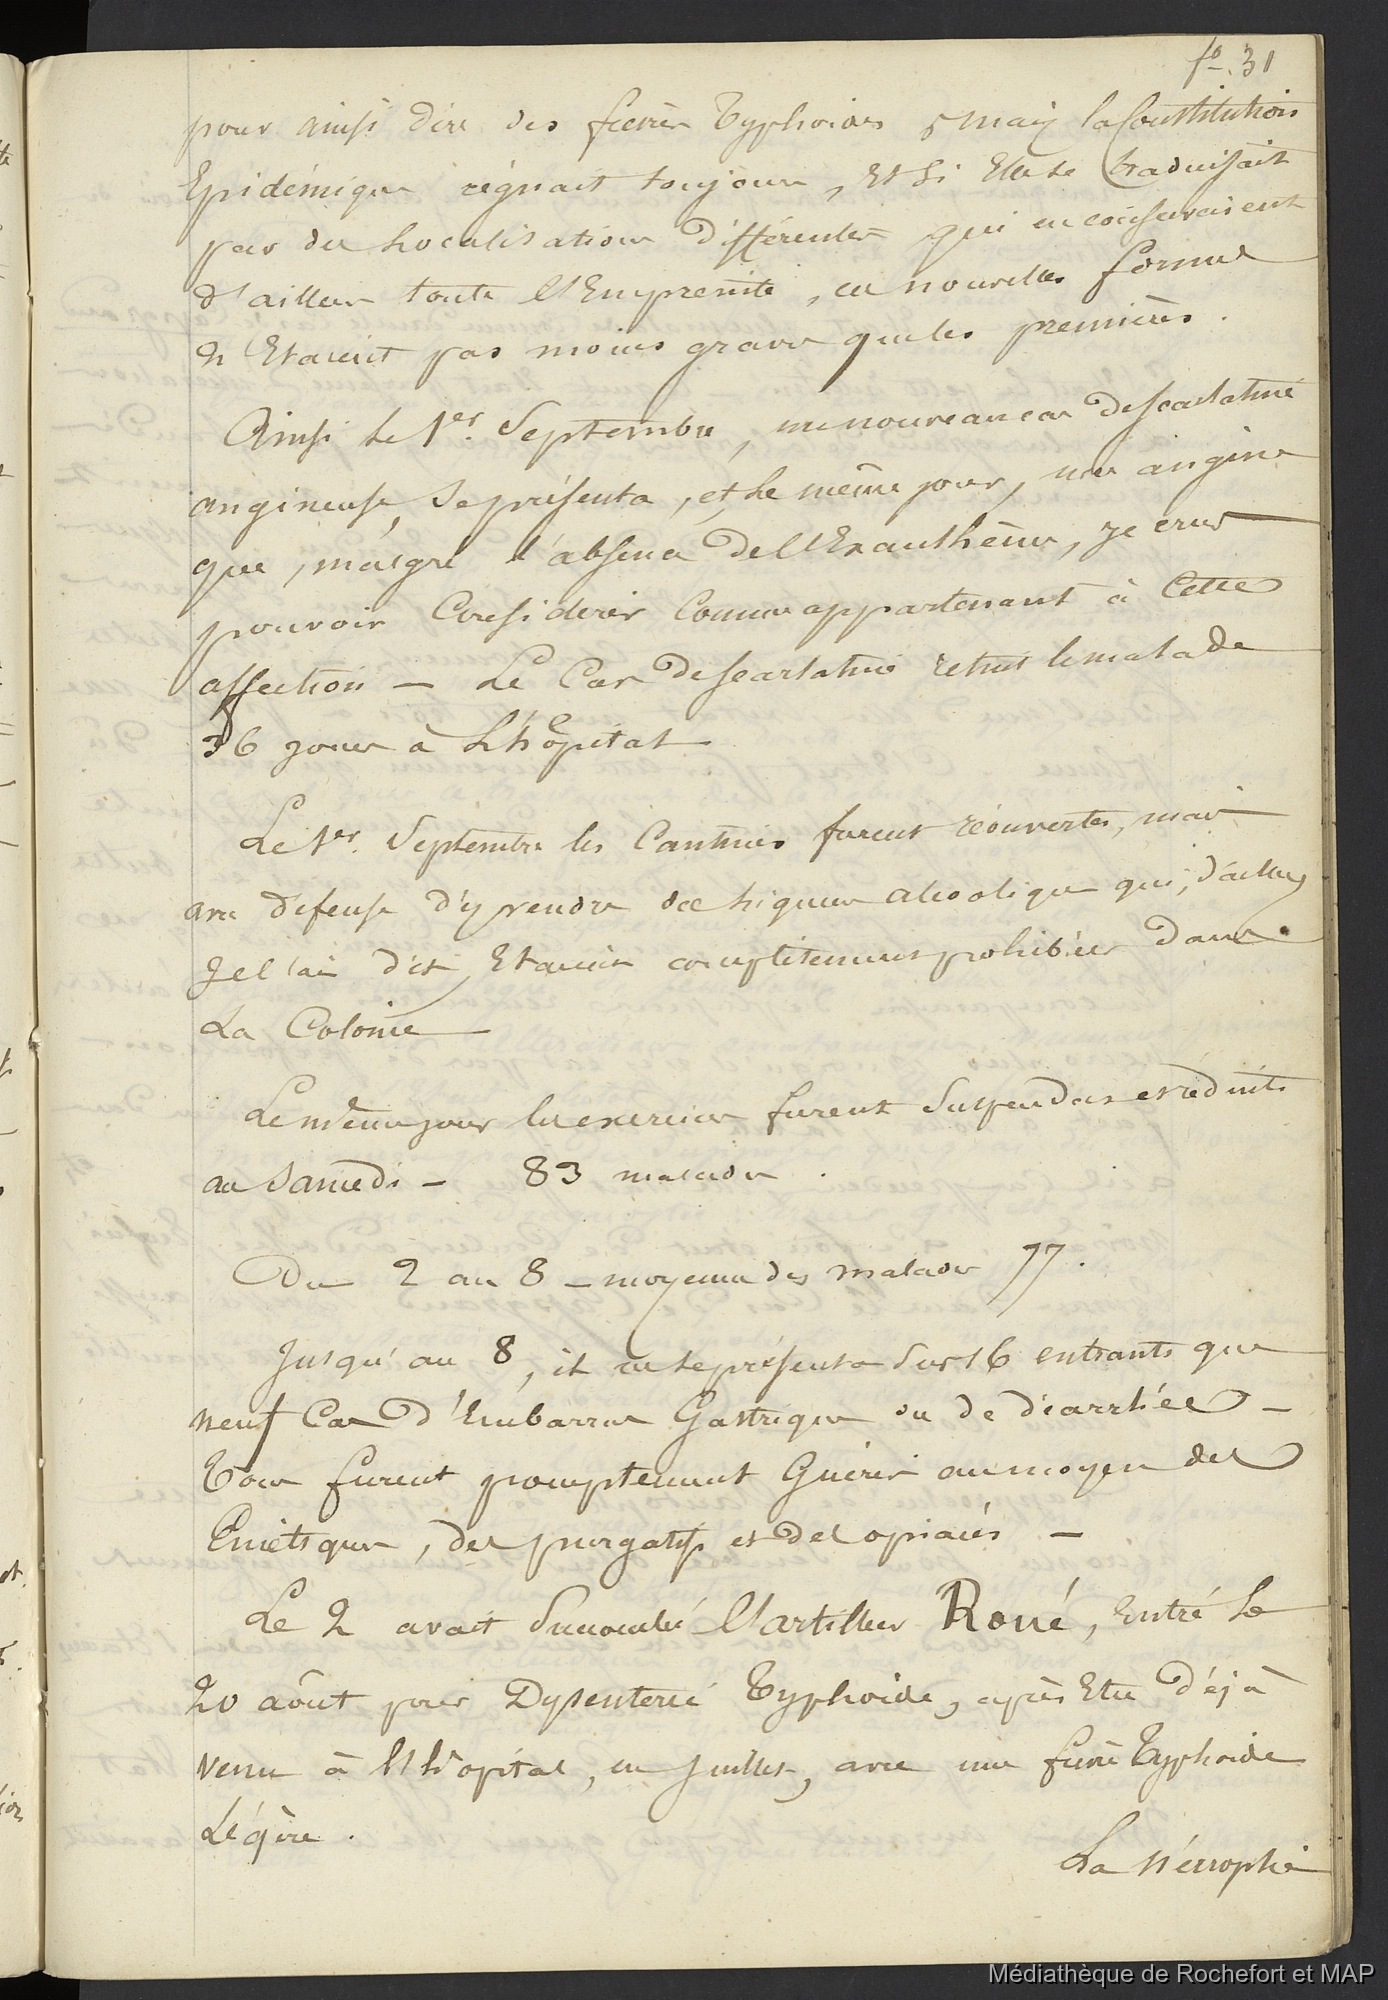 fo. 31
pour ainsi dire des fièvres Typhoides, mais la Constitution
Epidémique régnait toujours, Et si Elle se traduisait
par des Localisations différentes qui en conservaient
d'ailleurs toute l'Empreinte, ces nouvelles formes
n'Etaient pas moins graves que les premières.
Ainsi le 1er. Septembre, un nouveau cas de scarlatine
angineuse, se présenta, et le même jour, une angine
que, malgré l'absence de l'Exanthème, je crus
pouvoir Considérer Comme appartenant à Cette
affection — Le Cas de scarlatine retint le malade
36 jours à L'hôpital
Le 1er. Septembre les Cantines furent réouvertes, mais
avec défense d'y vendre des Liqueurs alcooliques qui, d'ailleurs
je l'ai dit, Etaient complètement prohibées dans
La Colonie
Le même jour les exercices furent suspendus et réduits
au Samedi — 83 malades.
Du 2 au 8 — moyenne des malades 77.
Jusqu'au 8, il ne se présenta sur 16 entrants que
neuf Cas d'Embarras Gastrique ou de diarrhée —
Tous furent promptement Guéris au moyen des
Emétiques, des purgatifs et des opiacés —
Le 2 avait Succombé l'artilleur Roué, Entré le
20 aôut pour Dysenterie Typhoide, après Etre déjà
venu à l'hôpital, en Juillet, avec une fièvre Typhoide
Légère.
La nécropsie
Médiathèque de Rochefort et MAP